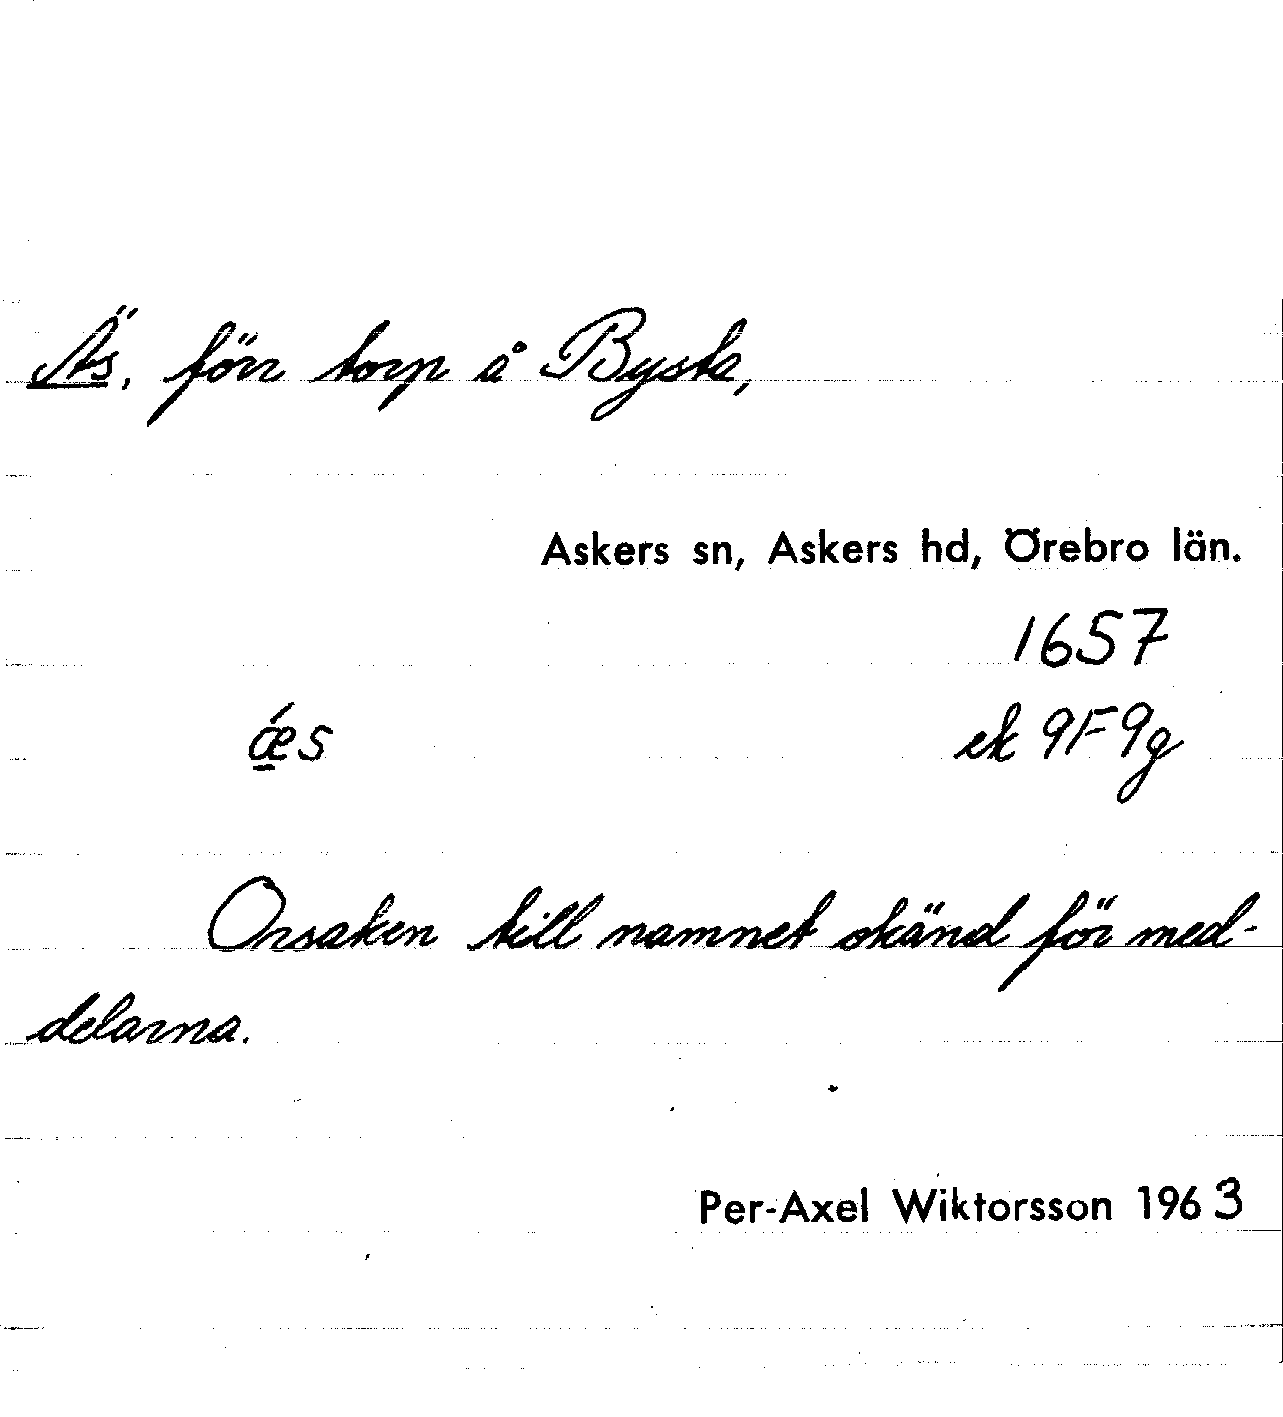 Äs, förr torp å Bysta,
Askers sn, Askers hd, Örebro län.
1657
ǽ̱s ek 9F9g
Orsaken till namnet okänd för med-
delarna.
Per-Axel Wiktorsson 1963